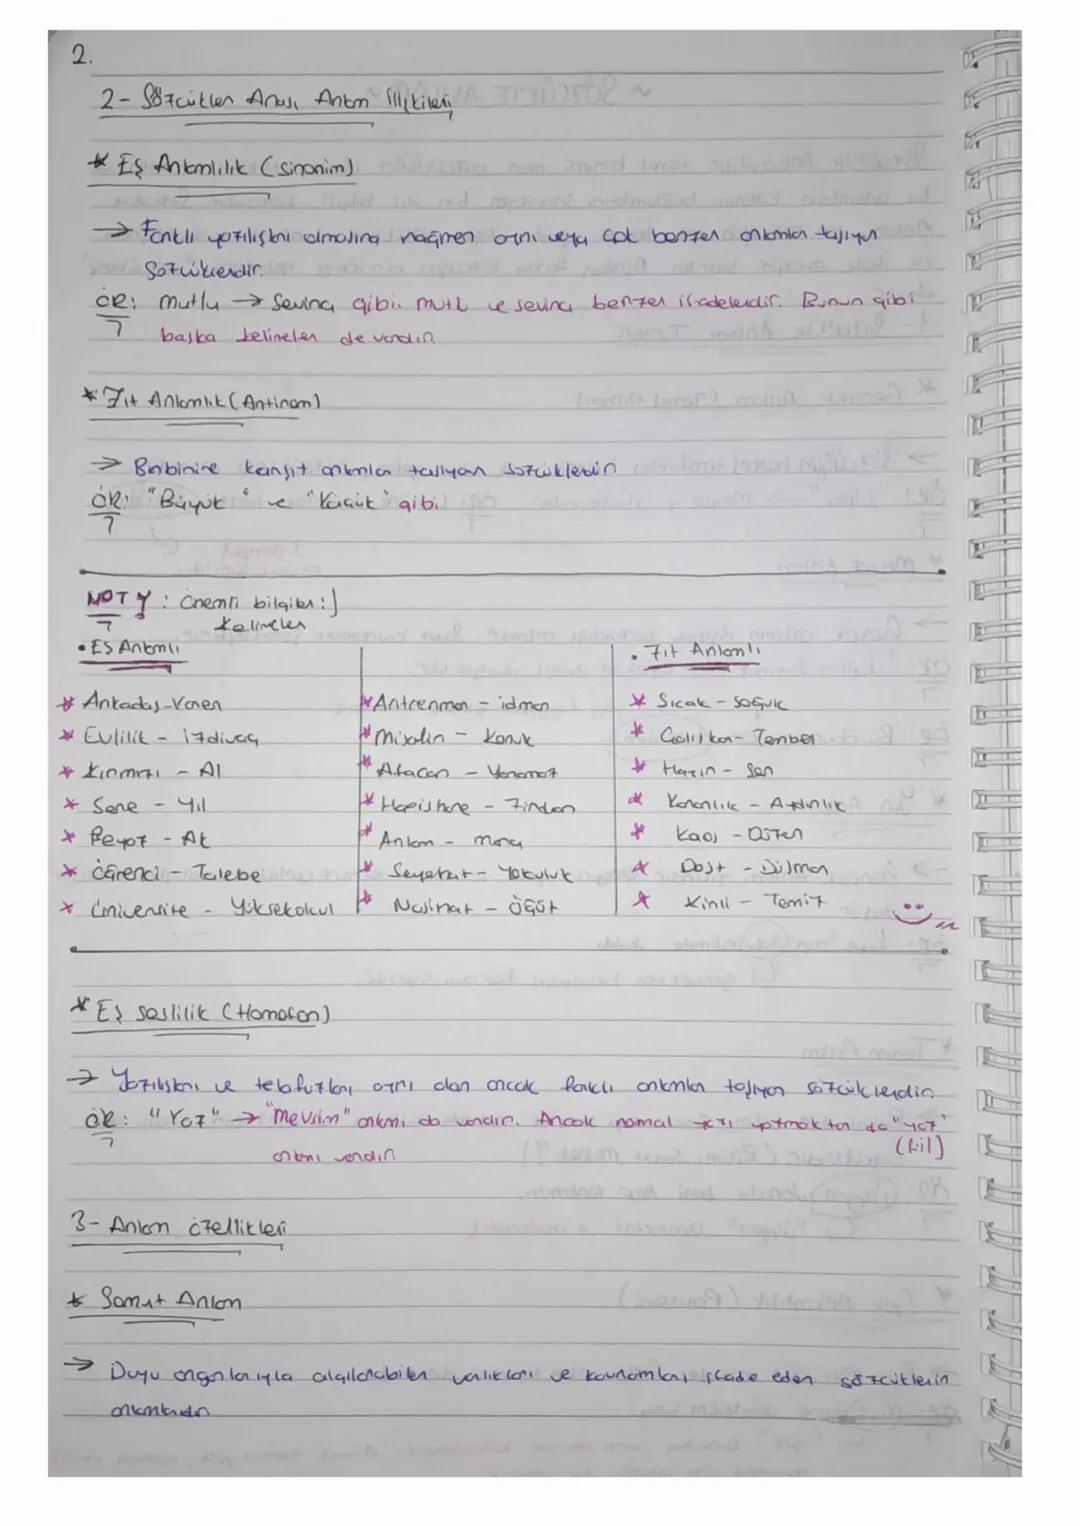 2.
2- Sözcükler Arası Anlam İlişkileri
* Eş Anlamlılık (sinonim)
→ Farklı yazılışları olmasına rağmen aynı veya çok benzer anlamlar taşıyan
sözcüklerdir.
ÖR: mutlu → Sevinç gibi. mutlu ve sevinç benzer ifadelerdir. Bunun gibi
başka kelimeler de vardır
* Zıt Anlamlık (Antinom)
→ Birbirine karşıt anlamlar taşıyan sözcüklerdir
ÖR: "Büyük" ve "Küçük" gibi
NOT: önemli bilgiler:)
kelimeler
• Eş Anlamlı
* Arkadaş-Yaren
* Evlilik - izdivaç
* Kırmızı - Al
* Sene - Yıl
* Beyaz - Ak
* Öğrenci - Talebe
* üniversite - Yüksekokul
* Antrenman - idman
* Misafir - Konuk
* Afacan - Yaramaz
* Hapishane - Zindan
* Anlam - mana
* Seyahat - Yolculuk
* Nasihat - öğüt
• Zıt Anlamlı
* Sıcak - soğuk
* Çalışkan - Tembel
* Hazin - Şen
* Karanlık - Aydınlık
* Kaos - Düzen
* Dost - Düşman
* Kirli - Temiz
* Eş seslilik (Homofon)
→ Yazılışları ve telafuzları aynı olan ancak farklı anlamlar taşıyan sözcüklerdir
ÖR: "Yaz" → "mevsim" anlamı da vardır. Ancak normal yazı yazmaktan da "yaz"
(fiil)
anlamı vardır
3- Anlam özellikleri
* Somut Anlam
→ Duyu organlarıyla algılanabilen varlıkları ve kavramları ifade eden sözcüklerin
anlamlarıdır